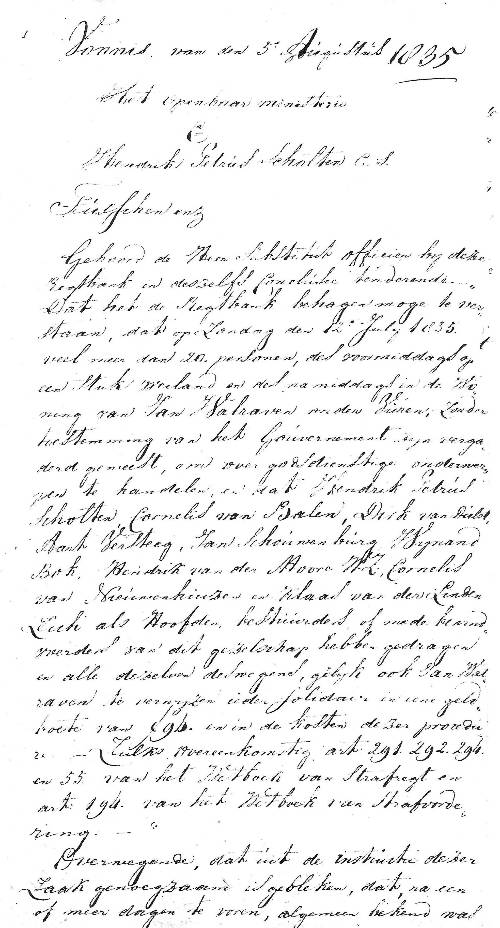 Vonnis van den 5 Augustus 1835
Het openbaar ministerie
C
Hendrik Petrus Scholten C. S.
Tielschen enz
Gehoord de Heer Substituut officier by deze
regtbank in deszelfs Conclusie tenderende
Dat het de Regtbank behagen moge te ver-
staan, dat op Zondag den 12 July 1835
veel meer dan 20. personen, des voormiddags op
een Stuk weiland en des namiddags in de Wo
ning van Jan Walraven onder Buren, Zonder
toestemming van het Gouvernement zyn verga
derd geweest, om over godsdienstige onderwer-
pen te handelen, en dat Hendrik Petrus
Scholten, Cornelis van Balen, Dirk van
Aart Versteeg, Jan Schouwenburg, Wynand
Bok, Hendrik van der Moore WZ, Cornelis
van Nieuwenhuizen en Klaas van der Linden
zich als Hoofden, bestuurders of mede bewind
voerders van dit gezelschap hebben gedragen
en alle dezelven deswegens, gelyk ook Jan Wal
raven te verwyzen ieder solidair in eene geld
boete van ƒ94. en in de kosten dezer procedu
re. — Zulks overeenkomstig art 291. 292. 294.
en 55 van het Wetboek van Strafregt en
art 194. van het Wetboek van Strafvorde-
ring. —
Overwegende, dat uit de instructie dezer
Zaak genoegzaam is gebleken, dat, na een
of meer dagen te voren, algemeen bekend was